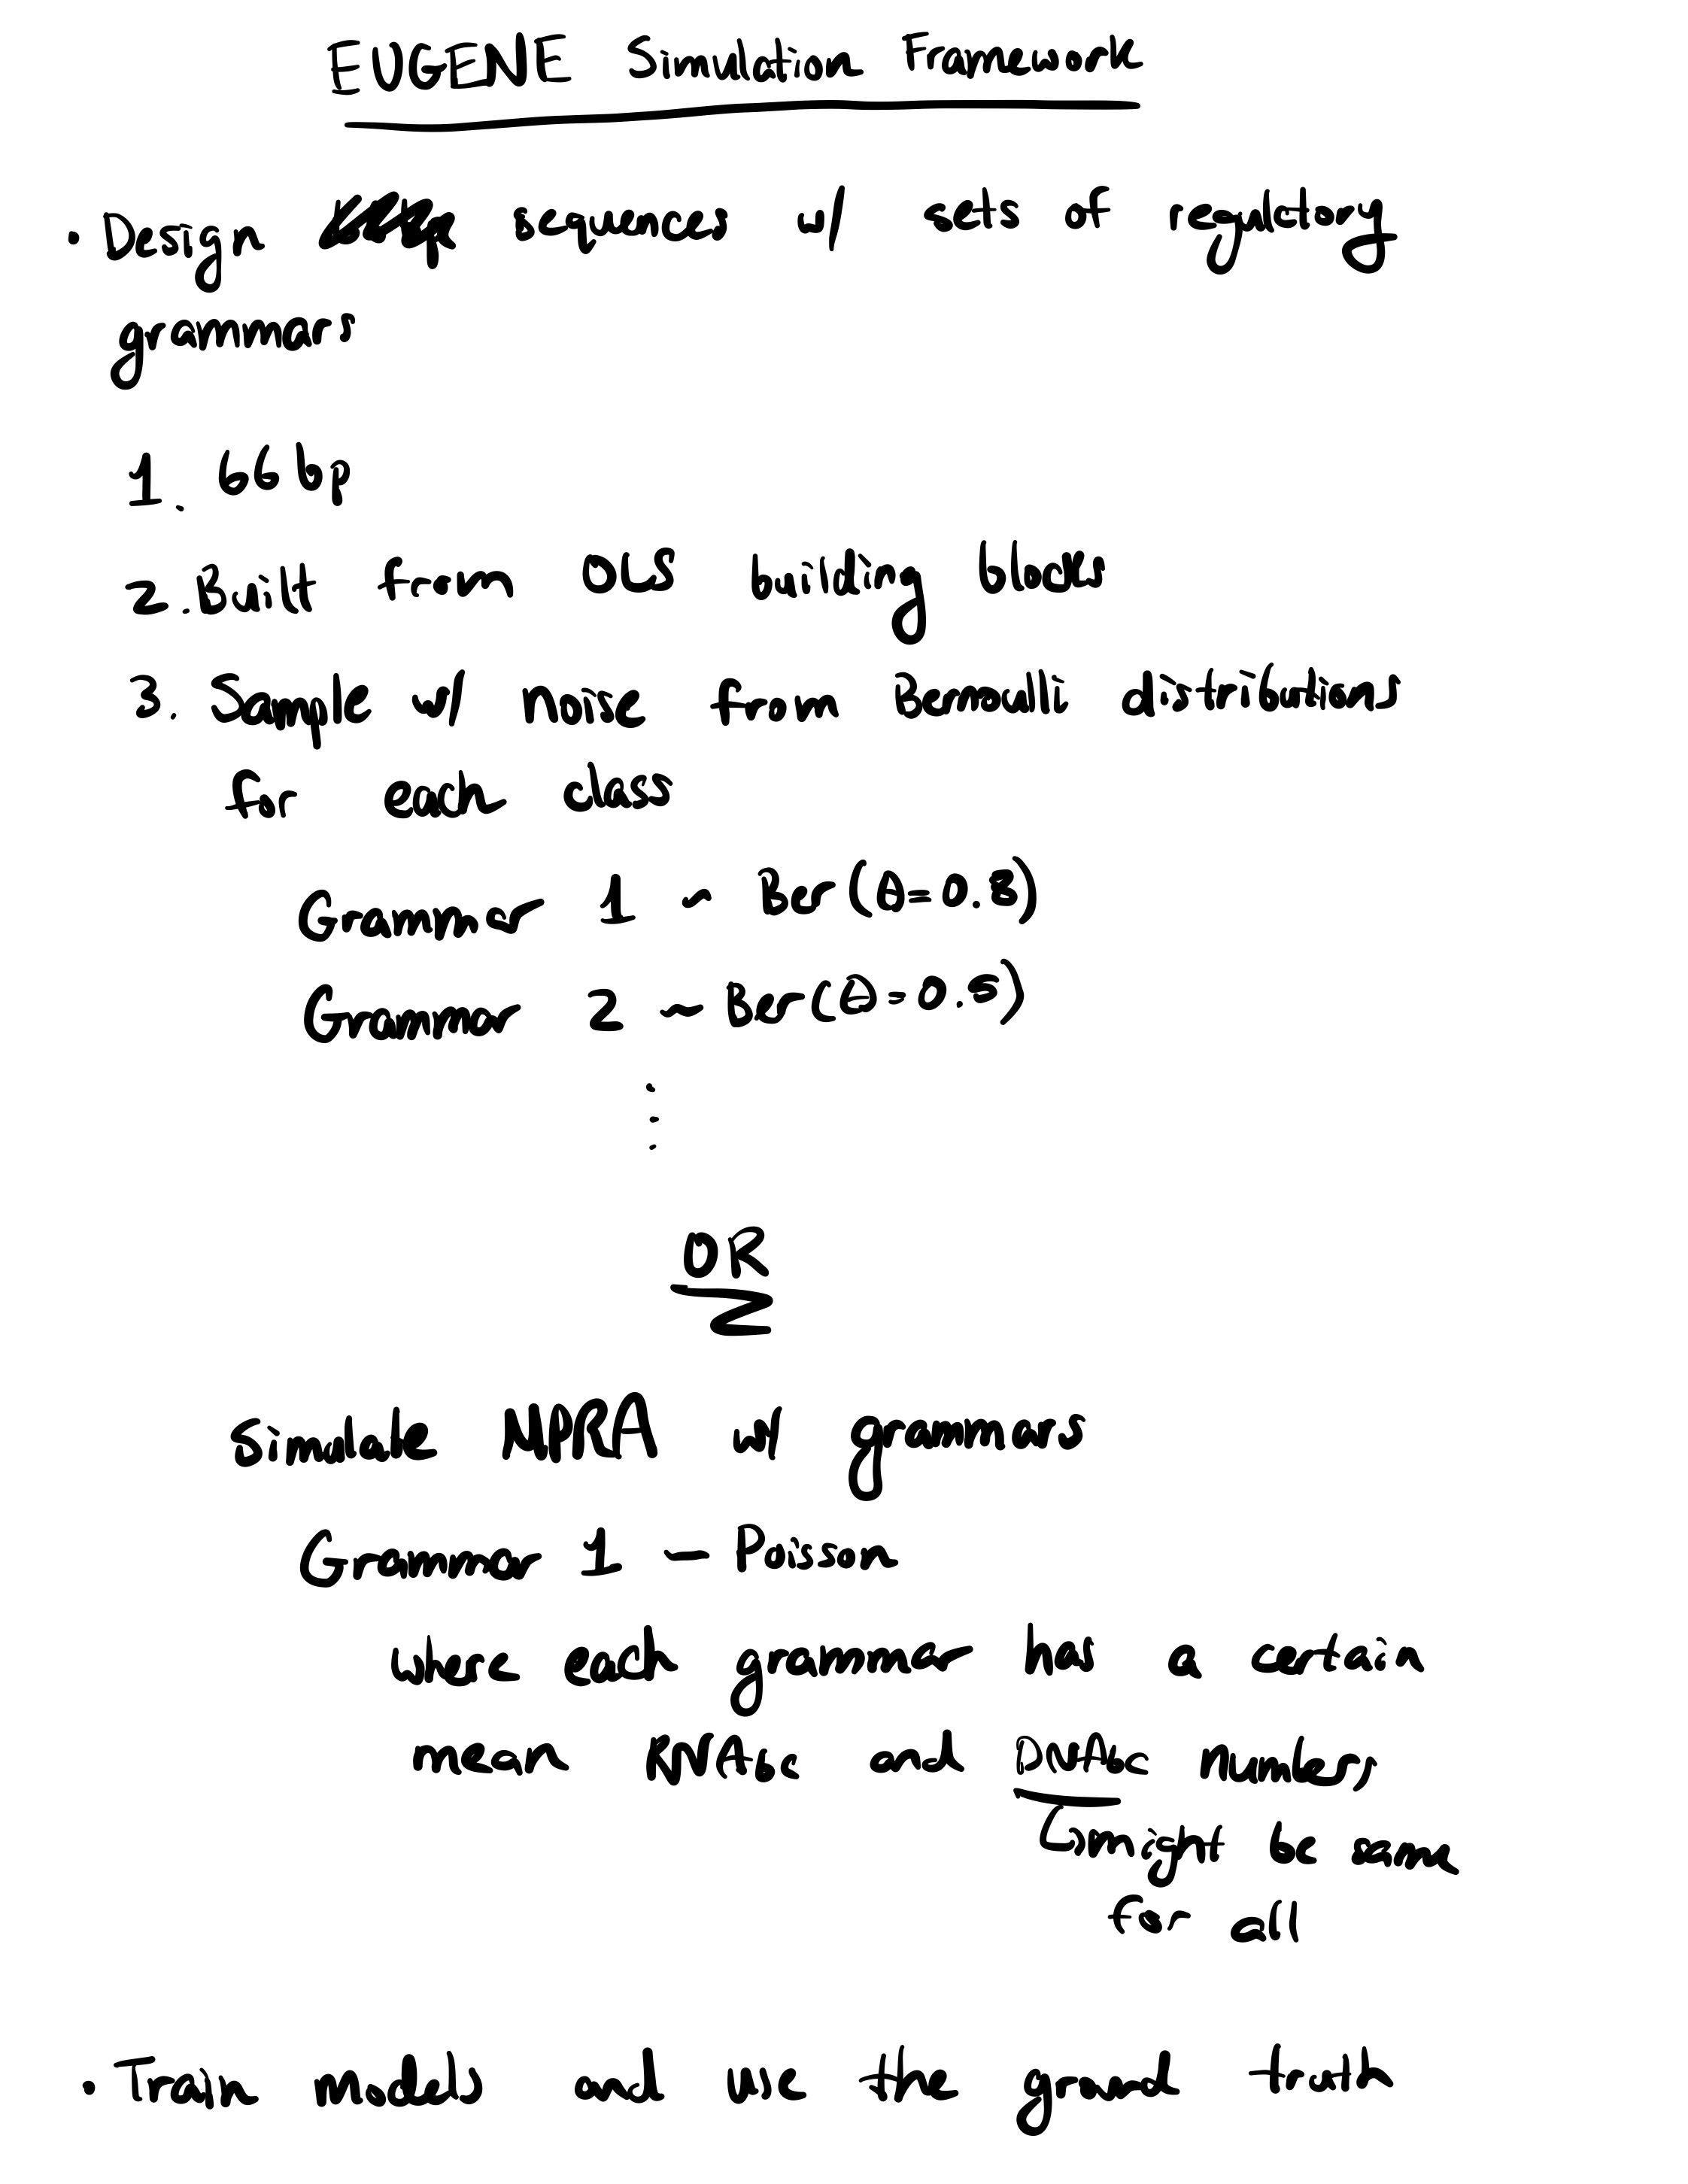 EUGENE Simulation Framework
· Design sequences w/ sets of regulatory
grammars
1. 66 bp
2. Built from OLS building blocks
3. Sample w/ noise from Bernoulli distributions
for each class
Grammar 1 ~ Ber(θ=0.8)
Grammar 2 ~ Ber(θ=0.5)
⋮
OR
Simulate MPRA w/ grammars
Grammar 1 — Poisson
where each grammar has a certain
mean RNAbc and DNAbc numbers
↳ might be same
for all
· Train models and use the ground truth